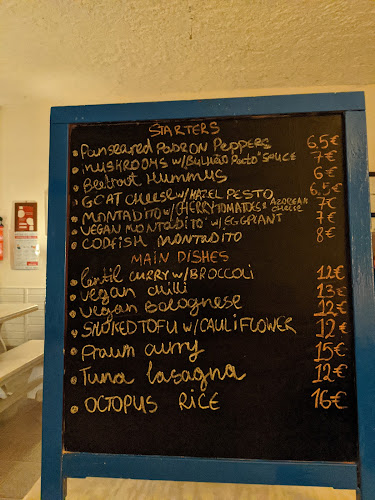 STARTERS
Panseared PADRON Peppers 6,5€
MUSHROOMS W/ BULHÃO PATO SAUCE 7€
Beetroot Hummus 6€
GOAT CHEESE W/ HAZEL PESTO 6,5€
MONTADITO W/ CHERRY TOMATOES & AZOREAN CHEESE 7€
VEGAN MONTADITO W/ EGGPLANT 7€
CODFISH MONTADITO 8€
MAIN DISHES
Lentil CURRY W/ BROCCOLI 12€
Vegan Chilli 13€
Vegan Bolognese 12€
SMOKED TOFU W/ CAULIFLOWER 12€
Prawn curry 15€
Tuna lasagna 12€
OCTOPUS RICE 16€